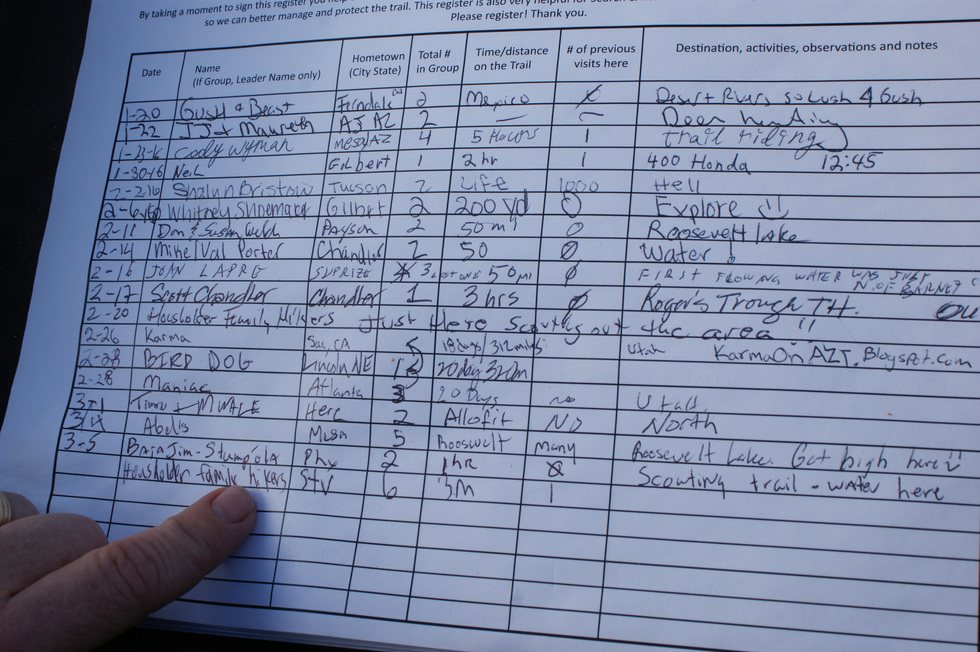 By taking a moment to sign this register you
so we can better manage and protect the trail. This register is also very helpful for
Please register! Thank you.
Date Name (If Group, Leader Name only) Hometown (City State) Total # in Group Time/distance on the Trail # of previous visits here Destination, activities, observations and notes
1-20 Gush & Beast Ferndale 2 Mexico Desert Rivers so Lush 4 Gush
1-22 JJ & Maureen AJ AZ 2 — —
1-23-16 Cody Wyman Mesa/AZ 4 5 Hours 1 trail riding
1-30-16 Neil Gilbert 1 2 hr 1 400 Honda 12:45
2-2-16 Shalyn Bristow Tucson 2 Life 1000 Hell
2-6 Whitney Shoemake Gilbrt 2 200 yd 0 Explore
2-11 Don & Susan Welch Payson 2 50 mi 0 Roosevelt lake
2-14 Mike/Val Porter Chandler 2 50 0 Water!
2-16 JOAN SUPRIZE 3 50 mi 0 FIRST FLOWING WATER WAS JUST N. OF
2-17 Scott Chandler Chandler 1 3 hrs 0 Roger's Trough TH.
2-20 Housholder Family Hikers Just Here Scouting out the area!!
2-26 Karma CA 5 18 days/312 miles Utah KarmaOnAZT.Blogspot.com
2-28 BIRD DOG Lincoln NE 1 20 day 320m
2-28 Maniac Atlanta 3 20 Days no Utah
3-1 Here 2 Allofit No North
3/4 Abells Mesa 5 Roosvelt many Roosevelt Lake. Get high here
3-5 Baja Jim - Phx 2 1hr
Housholder family hikers STV 6 3m 1 Scouting trail - water here